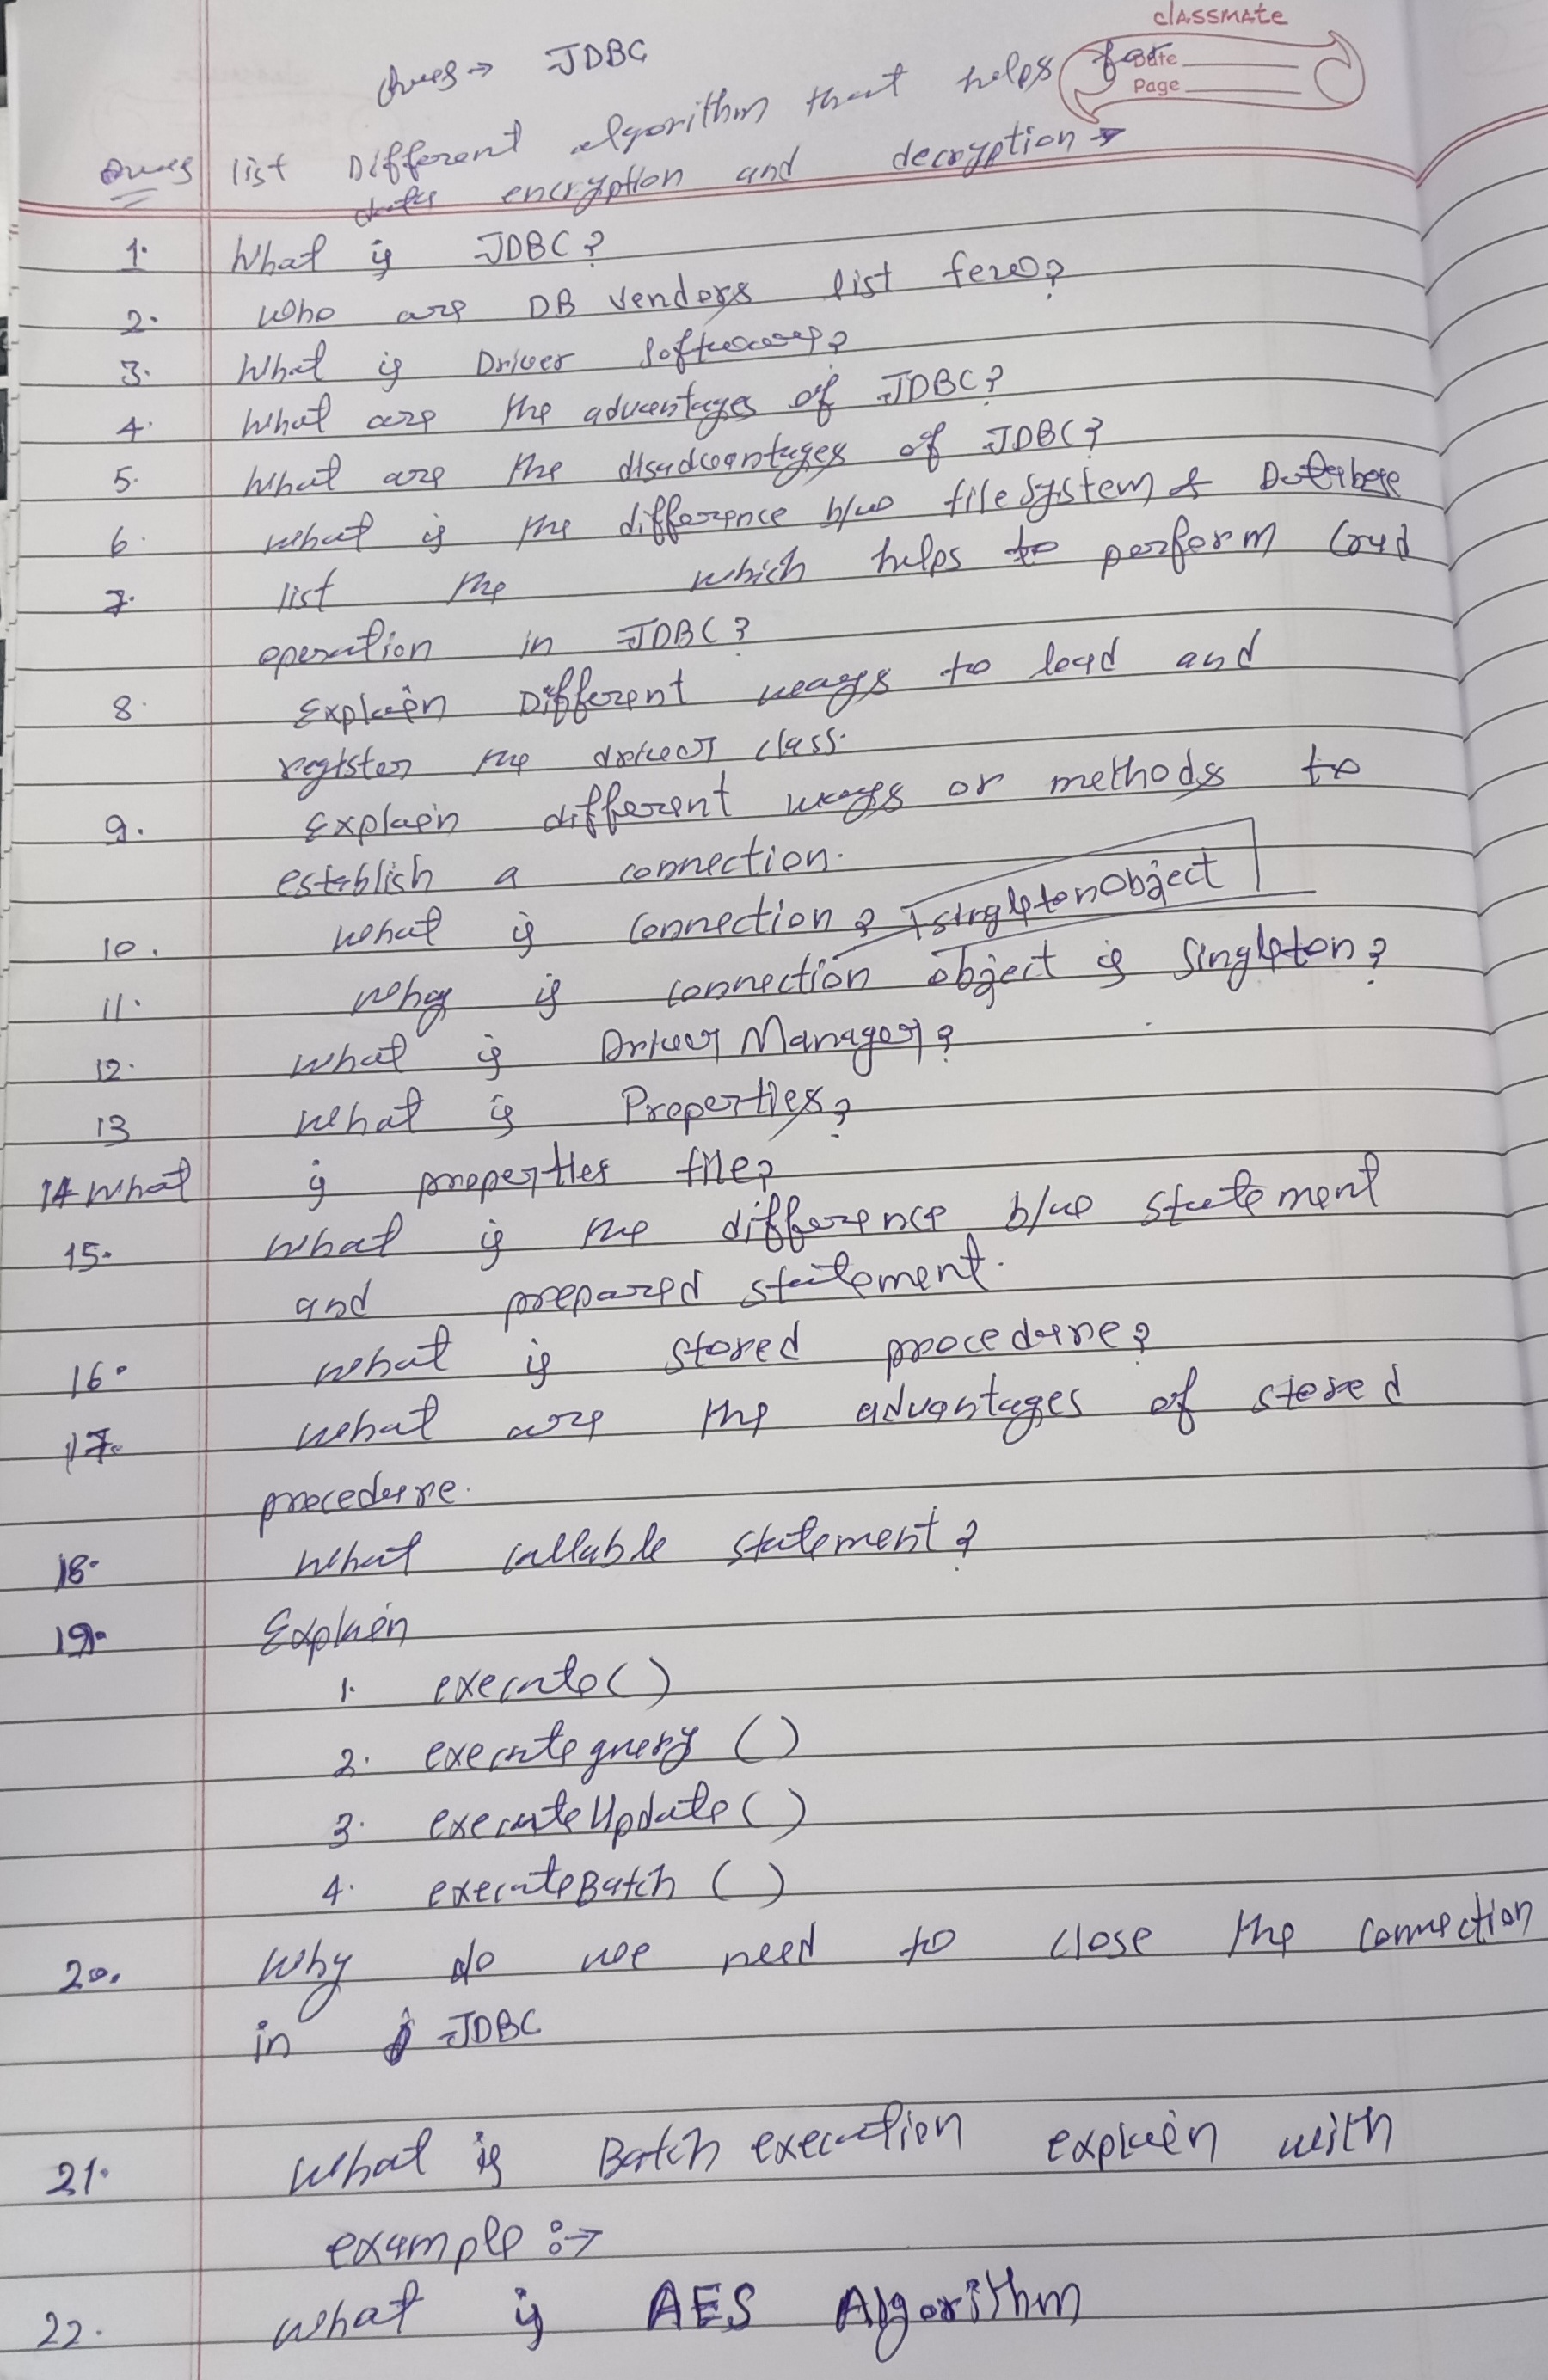 classmate
Date
Page
Ques → JDBC
Ques list Different algorithm that helps for
data encryption and decryption →
1. What is JDBC?
2. Who are DB vendors list few?
3. What is Driver software?
4. What are the advantages of JDBC?
5. What are the disadvantages of JDBC?
6. What is the difference b/w file system & Database
7. list the which helps to perform Crud
operation in JDBC?
8. Explain Different ways to load and
register the driver class.
9. Explain different ways or methods to
establish a connection.
10. What is connection? singleton Object
11. Why is connection object is Singleton?
12. What is Driver Manager?
13 What is Properties?
14 What is properties file?
15. What is the difference b/w statement
and prepared statement.
16. What is stored procedure?
17. What are the advantages of stored
procedure.
18. What callable statement?
19. Explain
1. execute()
2. executequery ()
3. executeUpdate()
4. executeBatch ()
20. Why do we need to close the connection
in JDBC
21. What is Batch execution explain with
example :→
22. What is AES Algorithm